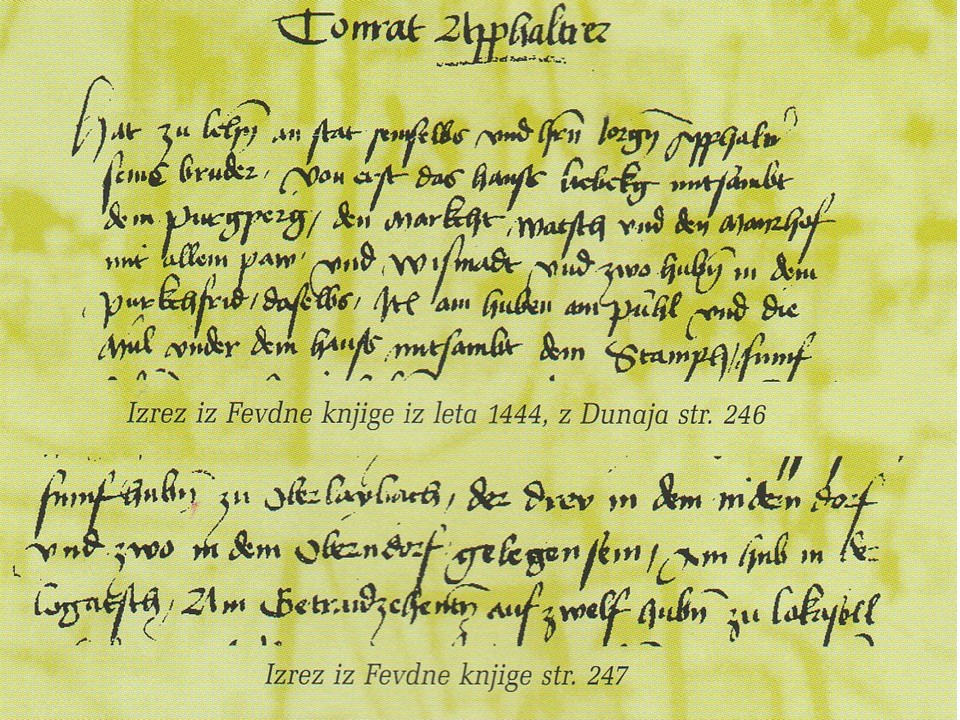 Conrat Apphaltrer
Hat zu lehn̄ an stat seinselbs vnd hrn̄ Jorgn̄ Apphaltr
seins bruder, von erst das hauss liebekg mitsambt
dem purgperg / den Markcht, watsch vnd den Mayrhof
mit allem paw, vnd, wismadt vnd zwo hubn̄ in dem
purkchfrid, daselbs, Itē am huben am Pühl vnd die
Mül vnder dem hauss mitsambt dem Stampf / fumf
Izrez iz Fevdne knjige iz leta 1444, z Dunaja str. 246
fumf hubn̄ zu Oberlaybach, der drey in dem nidern dorf
vnd zwo in dem Oberndorf gelegen sein / ain hub in der
logatsch, Ain Getraidzehentn̄ auf zwelf hubn̄ zu
Izrez iz Fevdne knjige str. 247